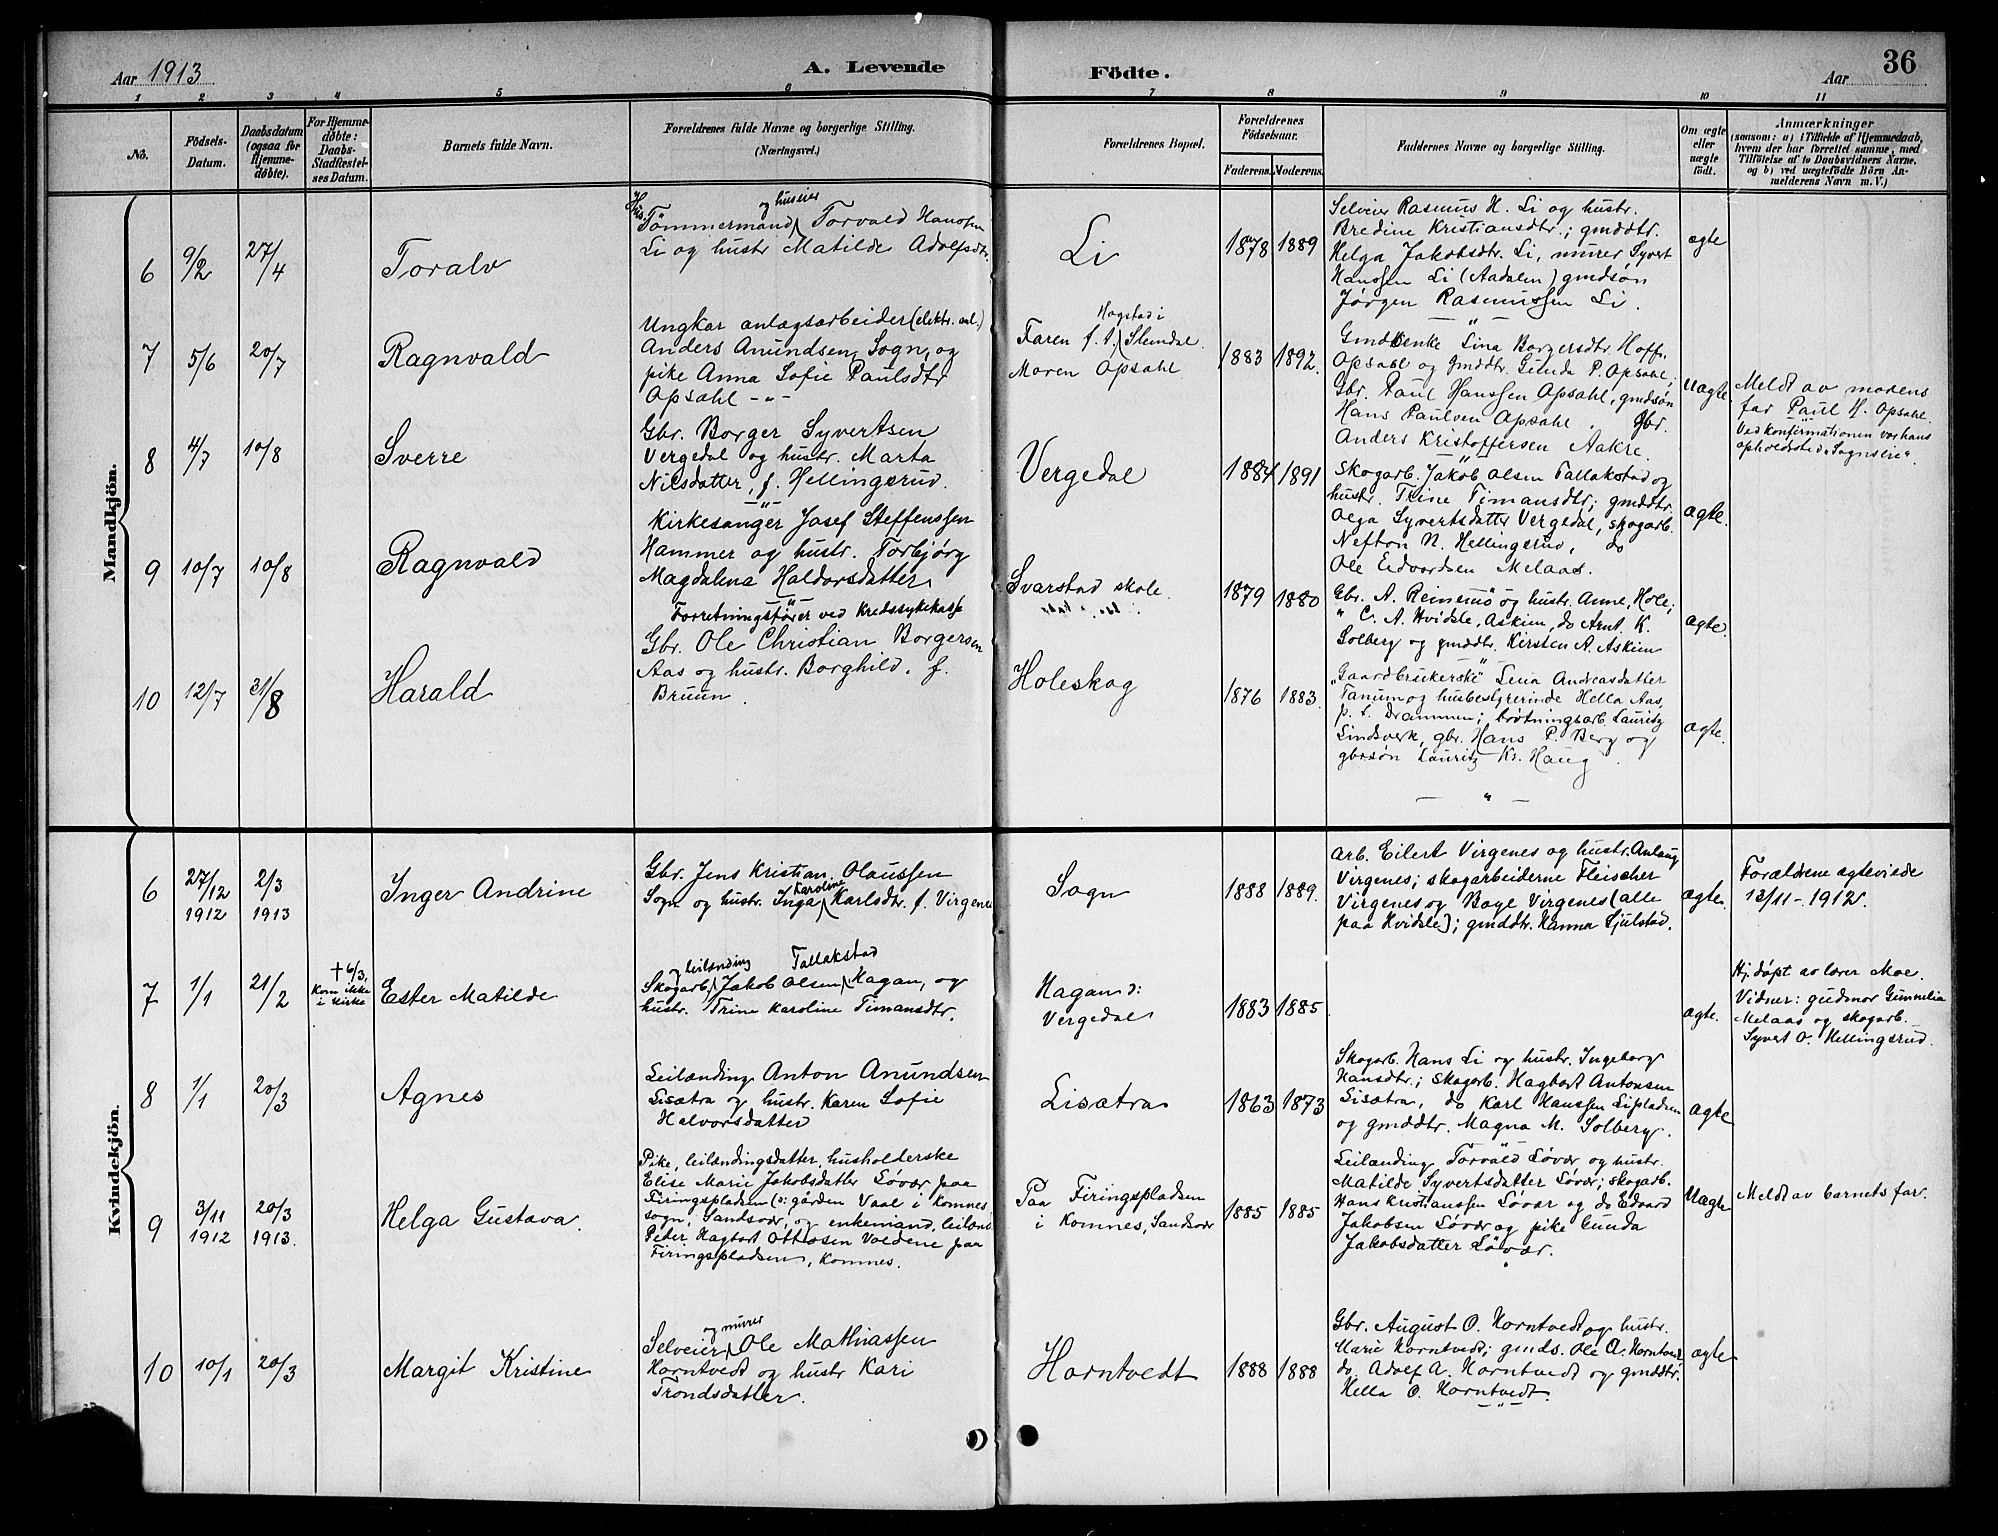 Aar 1913
A. Levende
Födte.
Aar
36
1 2 3 4 5 6 7 8 9 10 11
No.
Födsels-
Datum.
Daabsdatum
(ogsaa for
Hjemme-
døbte).
For Hjemme-
døbte:
Daabs-
Stadfæstel-
ses Datum.
Barnets fulde Navn.
Forældrenes fulde Navne og borgerlige Stilling.
(Næringsvei.)
Forældrenes Bopæl.
Forældrenes
Födselsaar.
Faderens. Moderens.
Faddernes Navne og borgerlige Stilling.
Om ægte
eller
uægte
født.
Anmærkninger
(saasom: a) i Tilfælde af Hjemmedaab,
hvem der har forrettet samme, med
Tilføielse af to Daabsvidners Navne,
og b) ved uægtefödte Börn An-
melderens Navn m. V.)
Mandkjön.
6 9/2 27/4
Toralv
og huseier
Tömmermand Torvald Hanssen
Li og hustr Matilde Adolfsdtr.
Li
1878 1889
Selveier Rasmus H. Li og hustr.
Bredine Kristiansdtr.; gmddtr.
Helga Jakobsdtr. Li, murer Syvert
Hanssen Li (Aadalen) gmdsøn
Jørgen Rasmussen Li.
ægte
7 5/6 20/7
Ragnvald
Ungkar anlægsarbeider (elektr. anl.)
Anders Amundsen Sogn, og
pike Anna Sofie Paulsdtr
Opsahl
Hogstad i
Faren f. t. Slemdal
Moren Opsahl
1883 1892.
Gmdenke Lina Borgersdtr. Hoff,
Opsahl og gmddtr. Gunda P. Opsahl,
Gbr. Paul Hanssen Opsahl, gmdsøn
Hans Paulsen Opsahl. Gbr.
Anders Kristoffersen Aakre.
Uægte.
Meldt av morens
far Paul H. Opsahl.
Ved konfirmationen var hans
opholdssted "Sognseie".
8 4/7 10/8
Sverre
Gbr. Borger Syvertsen
Vergedal og hustr. Marta
Nilsdatter, f. Hellingsrud.
Vergedal
1884 1891
Skogarb. Jakob Olsen Tallakstad og
hustr. Trine Timansdtr; gmddtr.
Olga Syvertsdatter Vergedal, skogarb.
Nefton N. Hellingsrud, do
Ole Edvardsen Melaas.
ægte.
9 10/7 10/8
Ragnvald
Kirkesanger Josef Steffenssen
Hammer og hustr. Torbjørg
Magdalena Haldorsdatter
Svarstad skole.
1879 1880
Gbr. A. Reinemo og hustr. Anne, Hole;
" C. A. Hvidsle, Askim, do Arnt K.
Solberg og gmddtr. Kirsten A. Askim
ægte.
10 12/7 31/8
Harald
Forretningsfører ved Kredssykekasse
Gbr. Ole Christian Borgersen
Aas og hustr. Borghild, f.
Bruun
Holeskog
1876 1883.
"Gaardbrukerske" Lena Andreasdatter
Tanum og husbestyrerinde Hella Aas,
p. t. Drammen; brøtningsarb. Lauritz
Lindsverk, gbr. Hans P. Berg og
gbrsøn Lauritz Kr. Haug.
ægte.
Kvindekjön.
6 27/12 1912 2/3 1913
Inger Andrine
Gbr. Jens Kristian Olaussen
Karoline
Sogn og hustr. Inga Karlsdtr. f. Virgenes
Sogn
1888 1889.
Arb. Eilert Virgenes og hustr. Anlaug
Virgenes; skogarbeiderne Fleischer
Virgenes og Boye Virgenes (alle
paa Hvidsle); gmddtr. Hanna Sjulstad.
ægte.
Forældrene egteviede
13/11 - 1912.
7 1/1 21/2
† 6/3,
Kom ikke
i kirke
Ester Matilde
og leilænding Tallakstad
Skogarb. Jakob Olsen Hagan, og
hustr. Trine Karoline Timansdtr.
Hagan ɔ:
Vergedal
1883 1885
ægte.
Hj. døpt av lærer Moe.
Vidner: gudmor Gunnelia
Melaas og skogarb.
Syvert O. Hellingsrud.
8 1/1 20/3
Agnes
Leilænding Anton Amundsen
Lisætra og hustr. Karen Sofie
Halvorsdatter
Lisætra
1863 1873
Skogarb. Hans Li og hustr. Ingeborg
Hansdtr.; skogarb. Hagbart Antonsen
Lisætra, do Karl Hanssen Lipladsen
og gmddtr. Magna M. Solberg.
ægte
9 3/11 1912 20/3 1913.
Helga Gustava.
Pike, leilændingsdatter, husholderske
Elise Marie Jakobsdatter Løvær paa
Firingspladsen (ɔ: gården Vaal i Komnes
sogn, Sandsvær, og enkemand, leilænd.
Peter Hagbart Ottosen Valdene paa
Firingspladsen, Komnes.
Paa Firingspladsen
i Komnes, Sandsvær
1885 1885
Leilænding Torvald Løvær og hustr.
Matilde Syvertsdatter Løvær; skogarb.
Hans Kristianssen Løvær og do Edvard
Jakobsen Løvær og pike Gunda
Jakobsdatter Løvær.
Uægte
Meldt av barnets far.
10 10/1 20/3
Margit Kristine
og murer
Selveier Ole Mathiassen
Horntvedt og hustr Kari
Trondsdatter.
Horntvedt
1888 1888
Gbr. August O. Horntvedt og hustr.
Marie Horntvedt; gmds. Ole A. Horntvedt,
do. Adolf A. Horntvedt og gmddtr.
Hella O. Horntvedt.
ægte